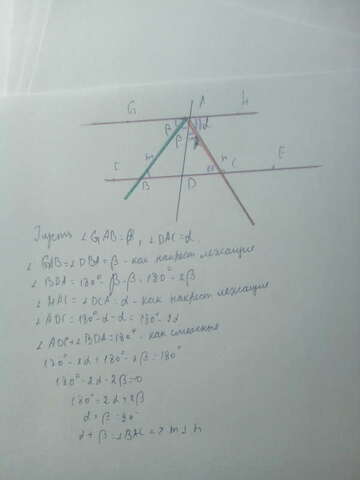 G A H
β β α
m n
F B D C E
Пусть ∠GAB=β, ∠DAC=α
∠GAB=∠DBA=β - как накрест лежащие
∠BDA=180°-β-β=180°-2β
∠HAC=∠DCA=α - как накрест лежащие
∠ADC=180°-α-α=180°-2α
∠ADC+∠BDA=180° - как смежные
180°-2α+180°-2β=180°
180°-2α-2β=0
180°=2α+2β
α+β=90°
α+β=∠BAC => m⊥n